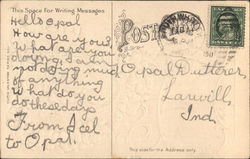 This Space For Writing Messages
Hello Opal
How are you?
What are you
doing, I am
not doing much
of any thing
What do you
do these days
From Icel
to Opal.
POST
Opal Dutterer
Larwill
Ind.
This side for the Address only.